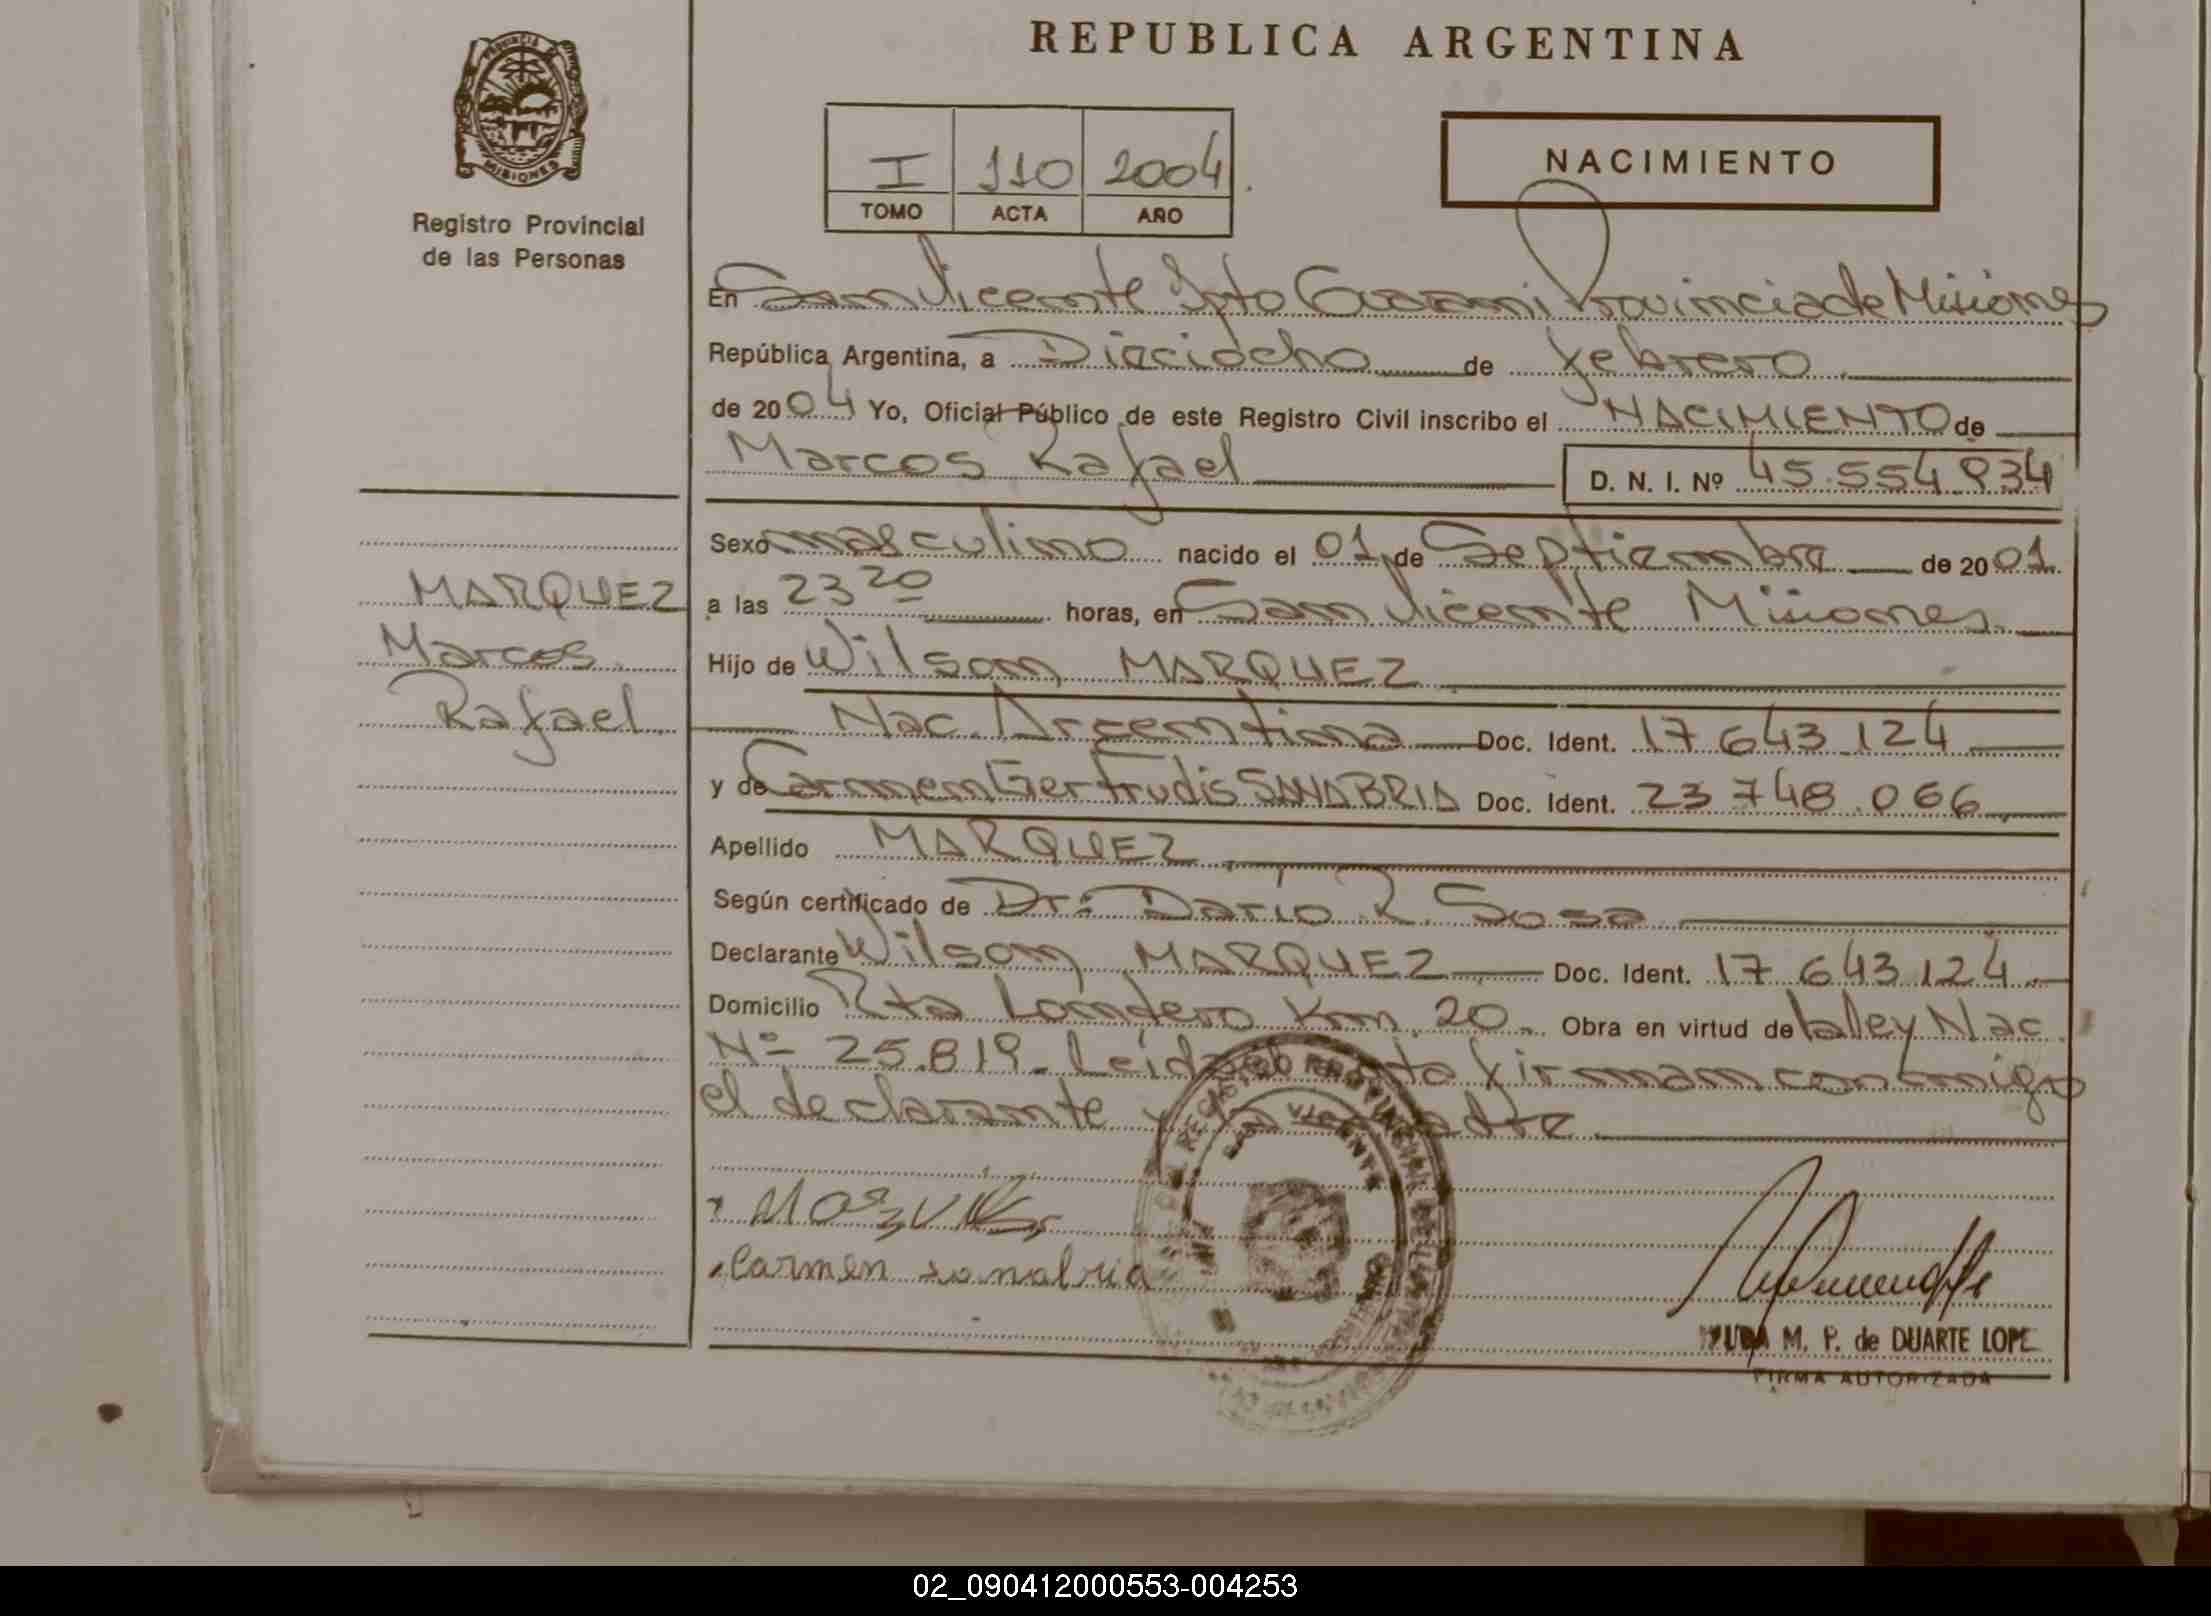 REPUBLICA ARGENTINA
PROVINCIA DE
MISIONES
Registro Provincial
de las Personas
I 110 2004
TOMO ACTA AÑO
NACIMIENTO
En San Vicente Dpto Guarani Provincia de Misiones
República Argentina, a Dieciocho de febrero
de 2004 Yo, Oficial Público de este Registro Civil inscribo el NACIMIENTO de
Marcos Rafael D. N. I. Nº 45.554.934
Sexo masculino nacido el 01 de Septiembre de 2001
a las 23 20 horas, en San Vicente Misiones
Hijo de Wilson MARQUEZ
Nac. Argentina Doc. Ident. 17 643 124
y de Carmen Gertrudis SANABRIA Doc. Ident. 23 748.066
Apellido MARQUEZ
Según certificado de Dr: Dario R. Sosa
Declarante Wilson MARQUEZ Doc. Ident. 17 643 124
Domicilio Rta Londero Km. 20. Obra en virtud de la ley Nac
Nº 25.819. Leida el acta firman conmigo
el declarante y la madre
MARQUEZ
Marcos
Rafael
Carmen sanabria
REGISTRO PROVINCIAL DE LAS
SAN VICENTE
M. P. de DUARTE LOPE
FIRMA AUTORIZADA
02_090412000553-004253